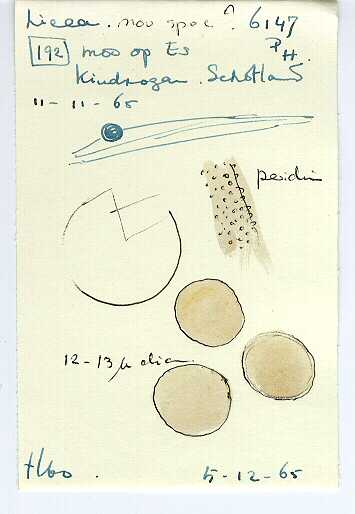 Licea. nov spec ? 6147
192 mos op Es PH.
Kindrogan. Schotland
11-11-65
peridium
12-13 µ diam.
5-12-65